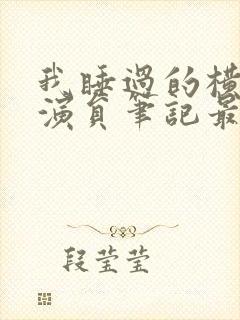 我睡过的横
演員筆記最
段莹莹